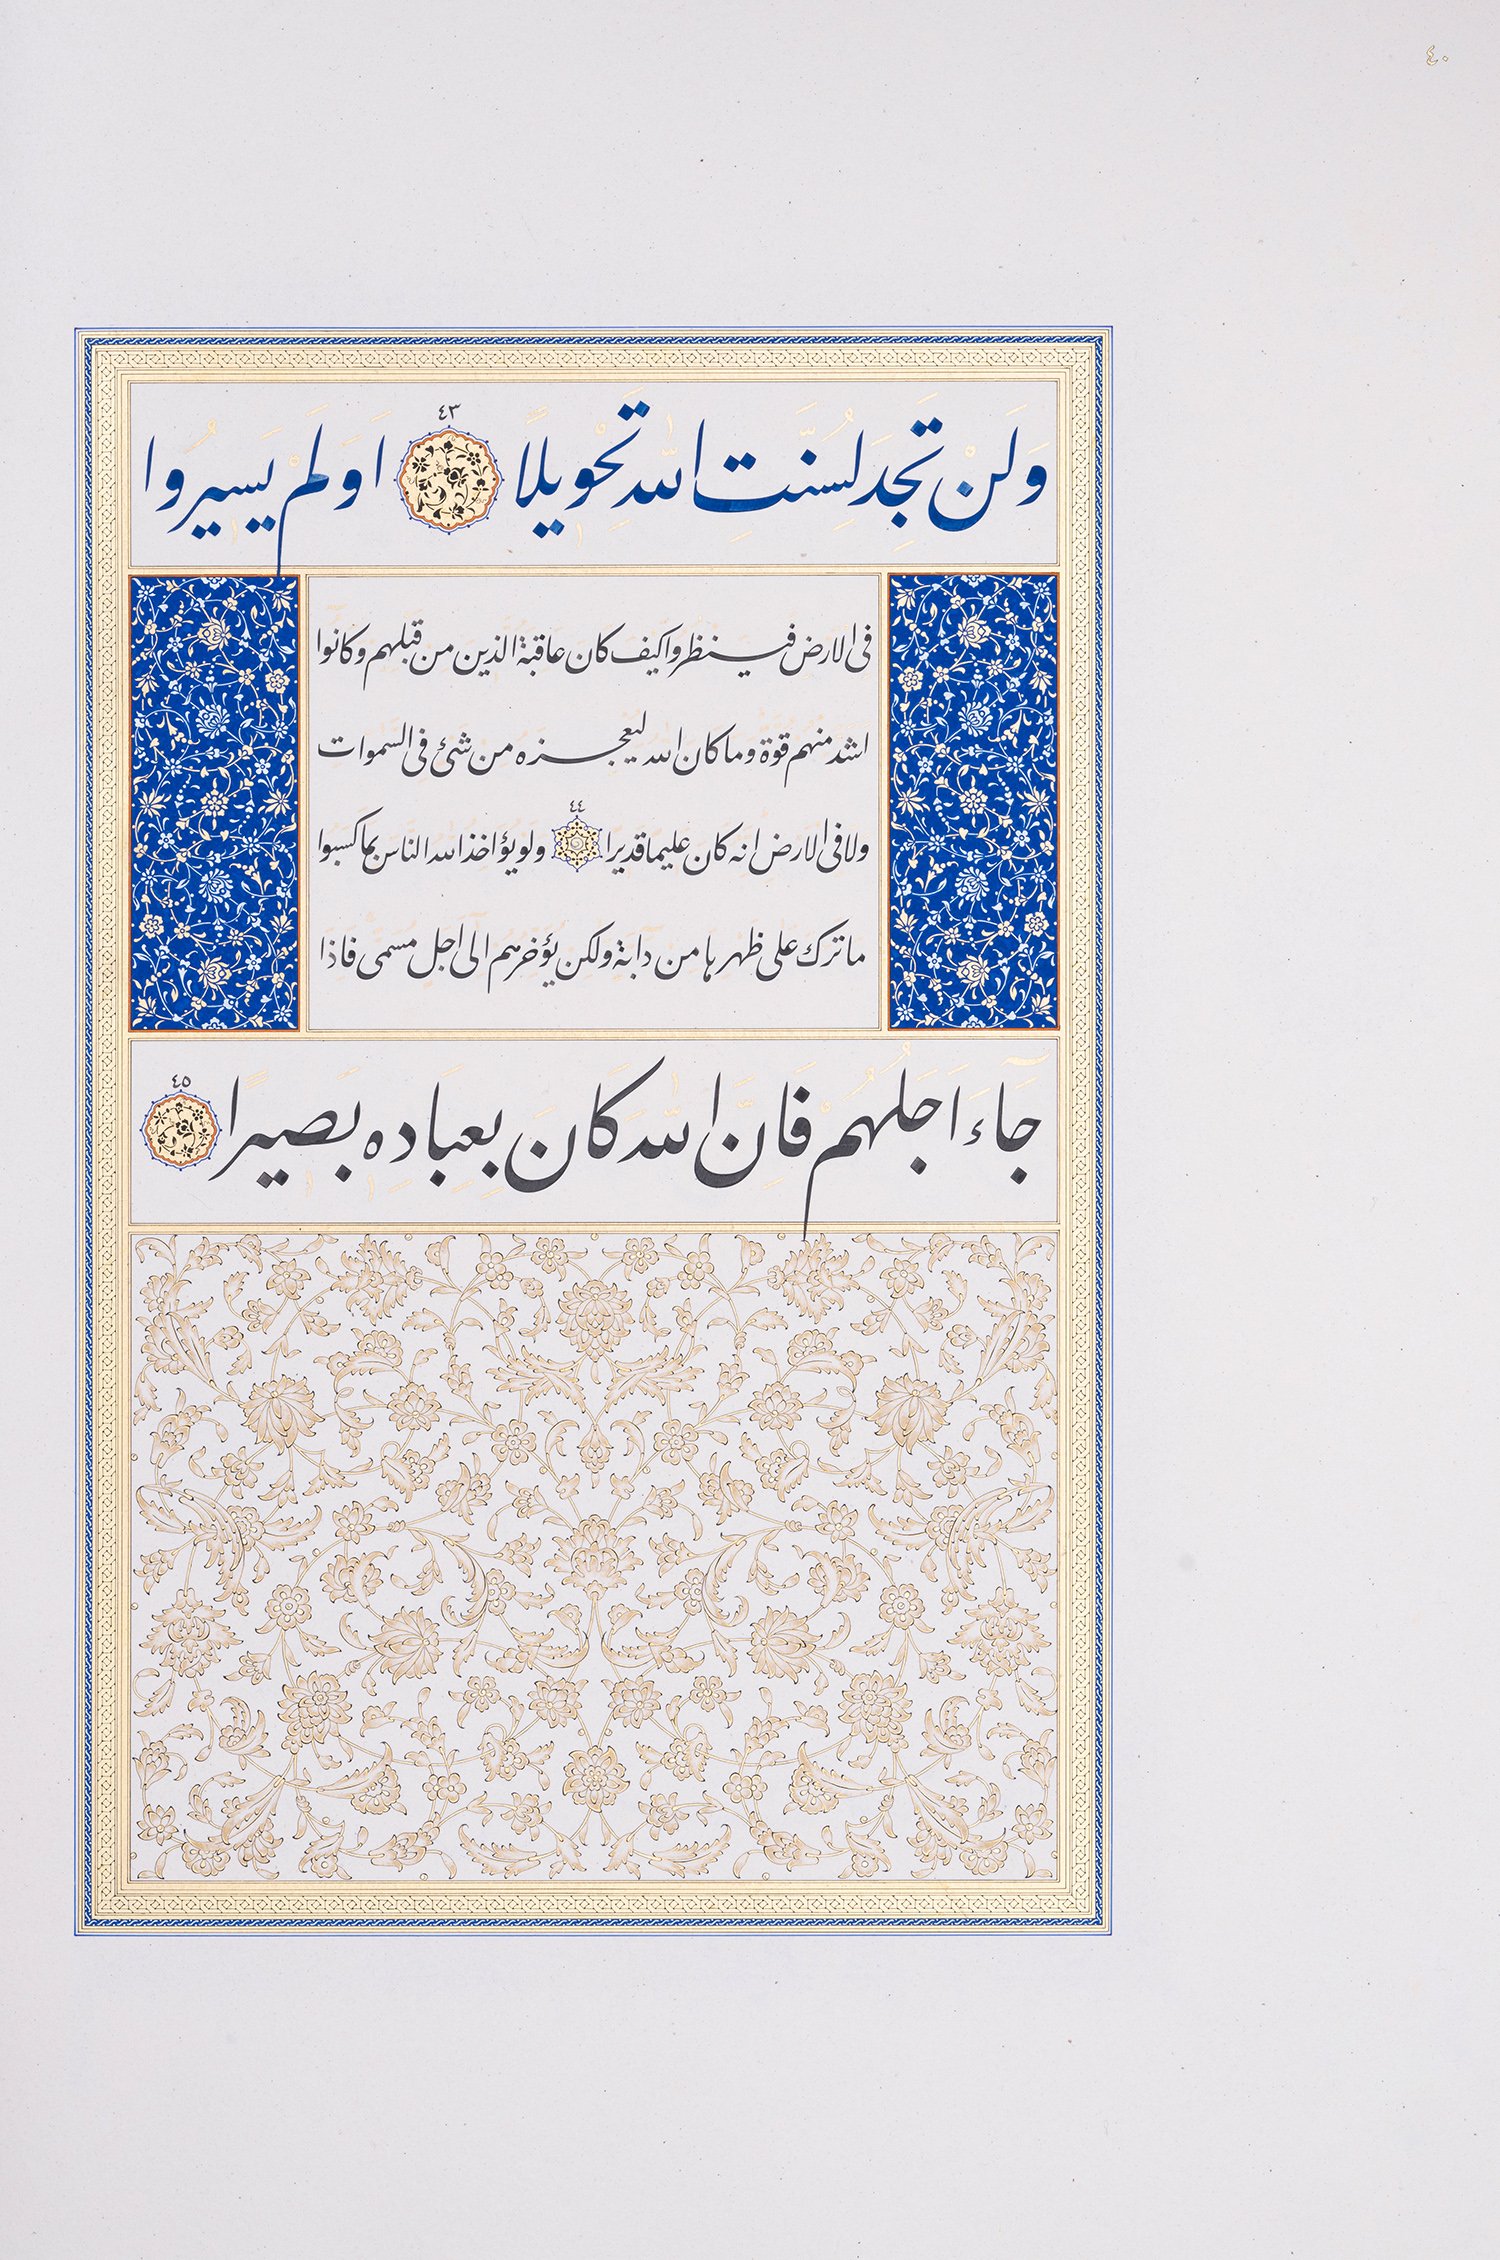 ٤٠
وَلَنْ تَجِدَ لِسُنَّتِ اللّٰهِ تَحْوِيلاً ٤٣ اَوَلَمْ يَسِيرُوا
فى الارض فينظروا كيف كان عاقبة الذين من قبلهم وكانوا
اشد منهم قوة وما كان الله ليعجزه من شئ فى السموات
ولا فى الارض انه كان عليما قديرا ٤٤ ولو يؤاخذ الله الناس بما كسبوا
ما ترك على ظهرها من دآبة ولكن يؤخرهم الى اجل مسمى فاذا
جَآءَ اَجَلُهُمْ فَاِنَّ اللّٰهَ كَانَ بِعِبَادِهِ بَصِيرًا ٤٥